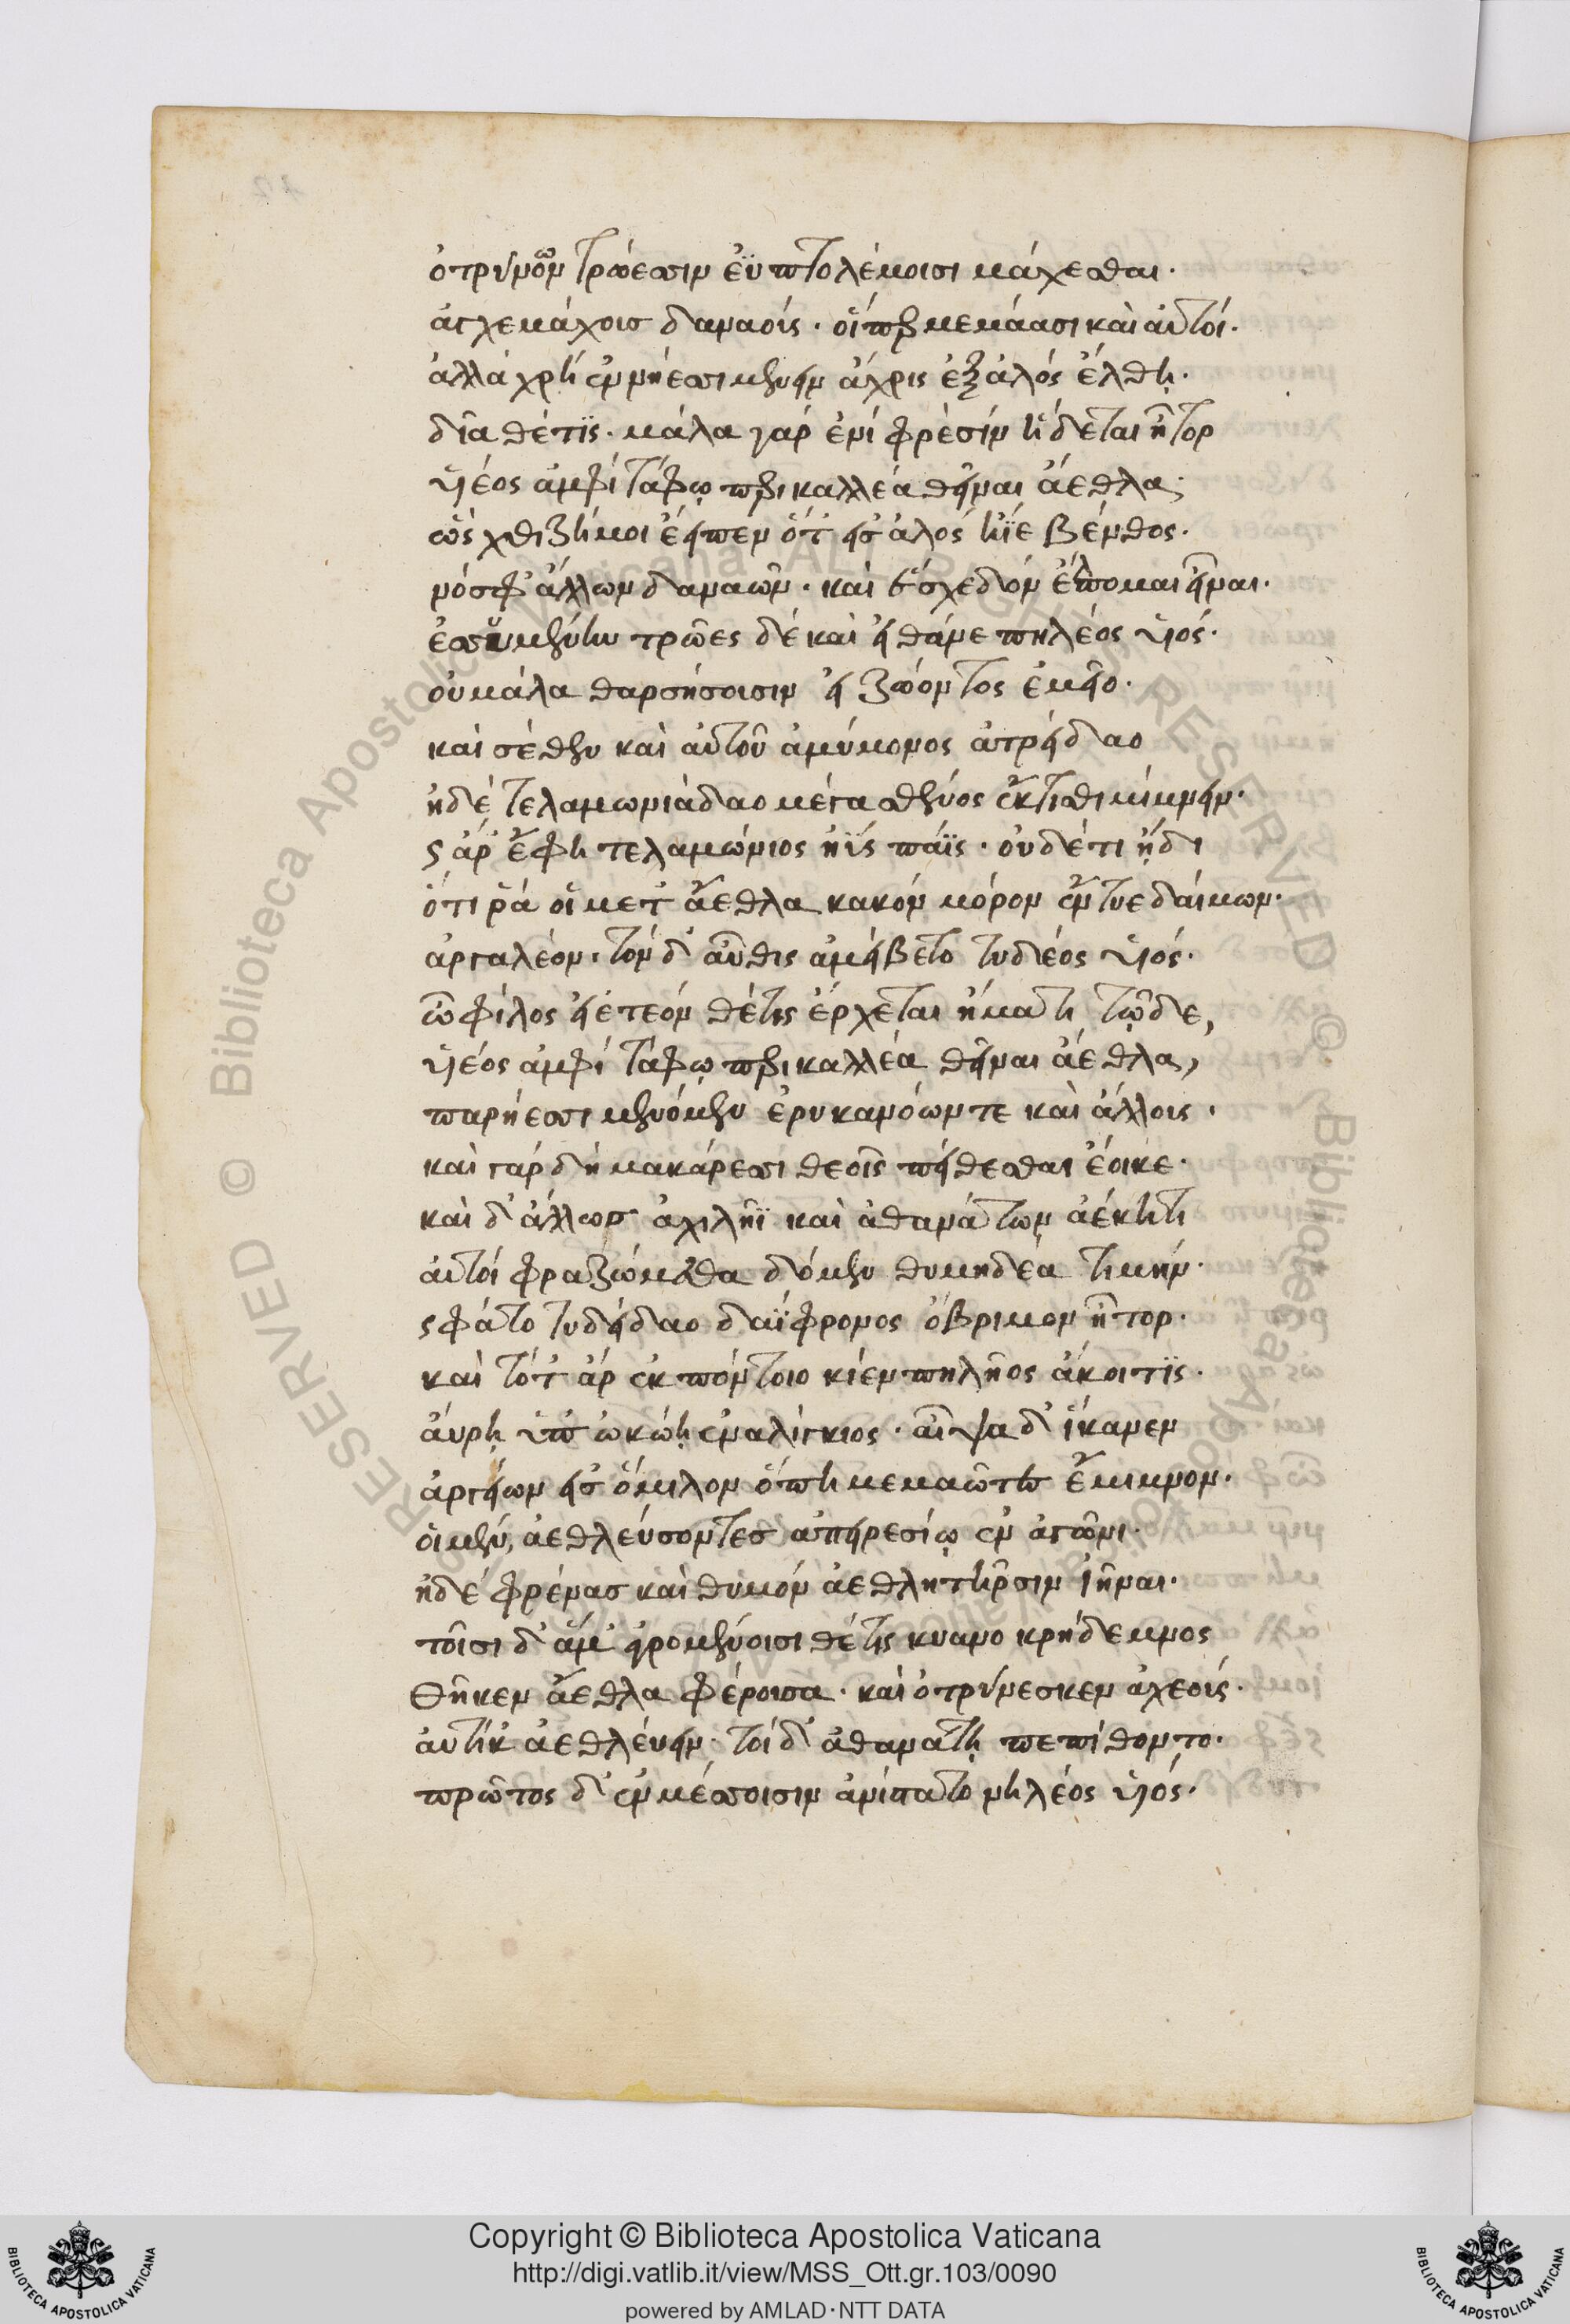 ὀτρύνων τρώεσσιν ἐϋπτολέμοισι μάχεσθαι·
ἀγχεμάχοισ δαναοῖς· οἵπερ μεμάασι καὶ αὐτοί·
ἀλλὰ χρὴ ἐν νήεσσι μένειν ἄχρις ἐξ ἁλός ἔλθη·
δῖα θέτϊς· μάλα γάρ ἐνί φρεσίν ἥδεται ἦτορ
ὑιέος ἀμφί τάφω περικαλλέα θεῖναι ἄεθλα·
ὥς χθιζή μοι ἔειπεν ὅτ' εἰσ ἁλός ἤϊε βένθος·
νόσφ' ἄλλων δαναῶν· καί ἑ σχεδόν ἔλπομαι εἶναι·
ἐσσυμένην τρῶες δέ καὶ εἰ θάνε πηλέος ὑιός·
οὐ μάλα θαρσήσοισιν ἔτι ζώοντος ἐμεῖο·
καὶ σέθεν καὶ αὐτοῦ ἀμύμονος ἀτρείδαο
ἠδέ τελαμωνιάδαο μέγα σθένος ἔκτιθι μίμνειν·
ς ἄρ' ἔφη τελαμώνιος ἠΰς πάϊς· οὐδέ τι ἤδι
ὅτι ῥά οἱ μετ' ἄεθλα κακόν μόρον ἔντυε δαίμων·
ἀργαλέον· τόν δ' αὖθις ἀμείβετο τυδέος ὑιός·
ὦ φίλος εἰ ἐτεόν θέτις ἔρχεται ἤματι τῶδε,
ὑιέος ἀμφί τάφω περικαλλέα θεῖναι ἄεθλα,
παρ νήεσσι μένομεν ἐρυκανόωντε καὶ ἄλλοις·
καὶ γάρ δή μακάρεσσι θεοῖς πείθεσθαι ἔοικε·
καὶ δ' ἄλλωσ ἀχιλῆϊ καὶ ἀθανάτων ἀέκητι
αὐτοί φραζώμεσθα δόμεν θυμηδέα τιμήν·
ς φάτο τυδείδαο δαΐφρονος ὄβριμον ἦτορ·
καὶ τότ' ἄρ ἐκ πόντοιο κίεν πηλῆος ἄκοιτϊς·
αὔρη ὑπ' ὠκώη ἐναλίγκιος· αἶψα δ' ἵκανεν
ἀργείων εἰσ ὅμιλον ὅπη μεμαῶτες ἔμιμνον·
οἱ μέν, ἀεθλεύσοντεσ ἀπειρεσίω ἐν ἀγῶνι·
ἠδέ φρένασ καὶ θυμόν ἀεθλητῆρσιν ἰῆναι·
τοῖσι δ' ἅμ' ἀγρομένοισι θέτις κυανοκρήδεμνος
θῆκεν ἄεθλα φέροισα· καὶ ὀτρύνεσκεν ἀχεοίς·
αὐτίκ' ἀεθλεύειν· τοί δ' ἀθανάτη πεπίθοντο·
πρῶτος δ' ἐν μέσσοισιν ἀνίστατο νηλέος ὑιός·
Copyright © Biblioteca Apostolica Vaticana
http://digi.vatlib.it/view/MSS_Ott.gr.103/0090
powered by AMLAD·NTT DATA